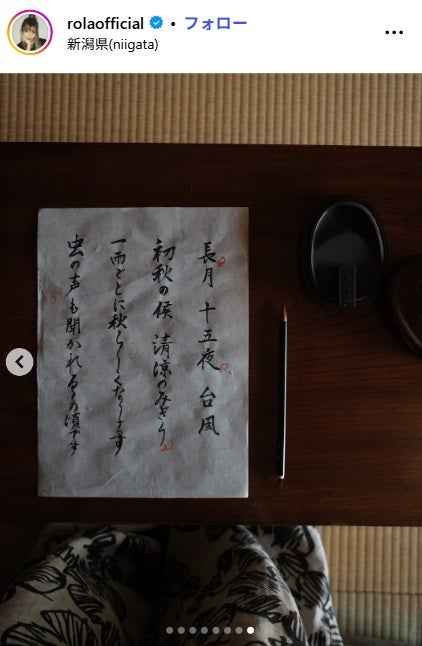 rolaofficial • フォロー
新潟県(niigata)
長月 十五夜 台風
初秋の候 清涼のみぎり
一雨ごとに秋らしくなります
虫の声も聞かれるこの頃です